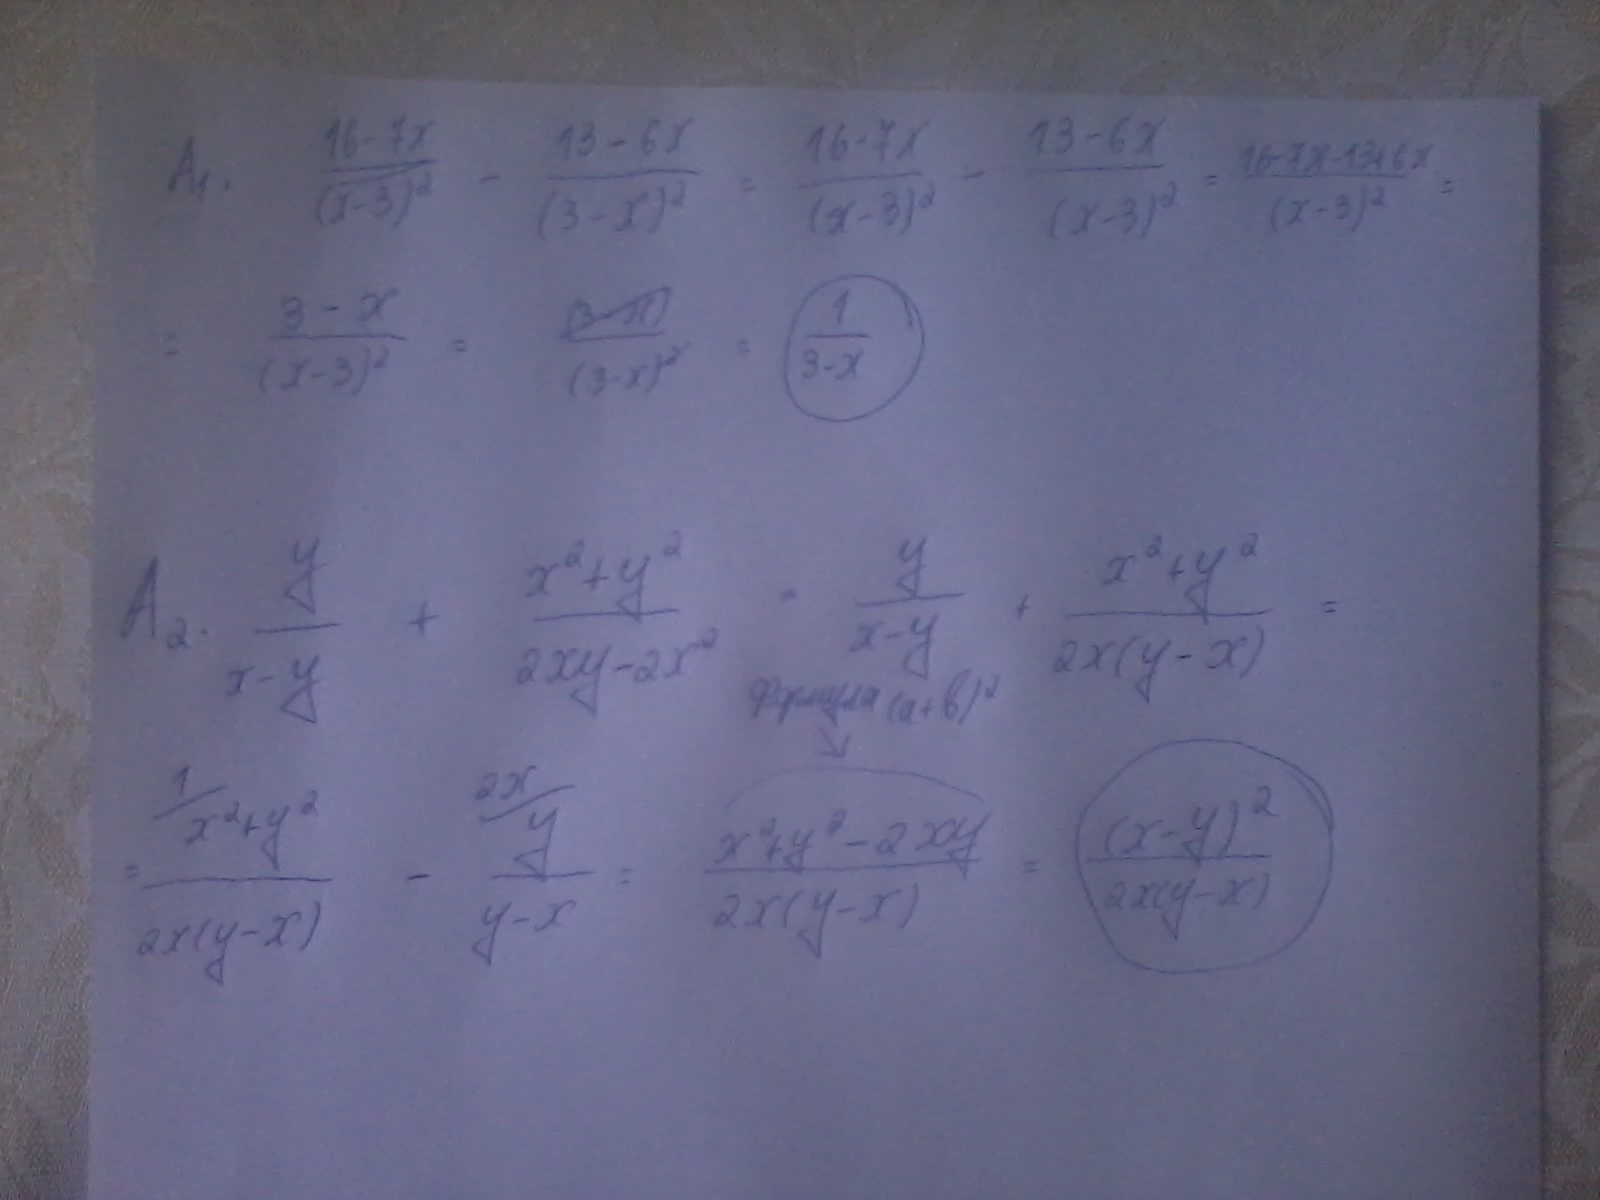 A₁. (16-7x)/(x-3)² - (13-6x)/(3-x)² = (16-7x)/(x-3)² - (13-6x)/(x-3)² = (16-7x-13+6x)/(x-3)² =
= (3-x)/(x-3)² = (3-x)/(3-x)² = 1/(3-x)
A₂. y/(x-y) + (x²+y²)/(2xy-2x²) = y/(x-y) + (x²+y²)/(2x(y-x)) =
формула (a+b)²
= ¹⁄(x²+y²)/(2x(y-x)) - ²ˣ⁄y/(y-x) = (x²+y²-2xy)/(2x(y-x)) = (x-y)²/(2x(y-x))